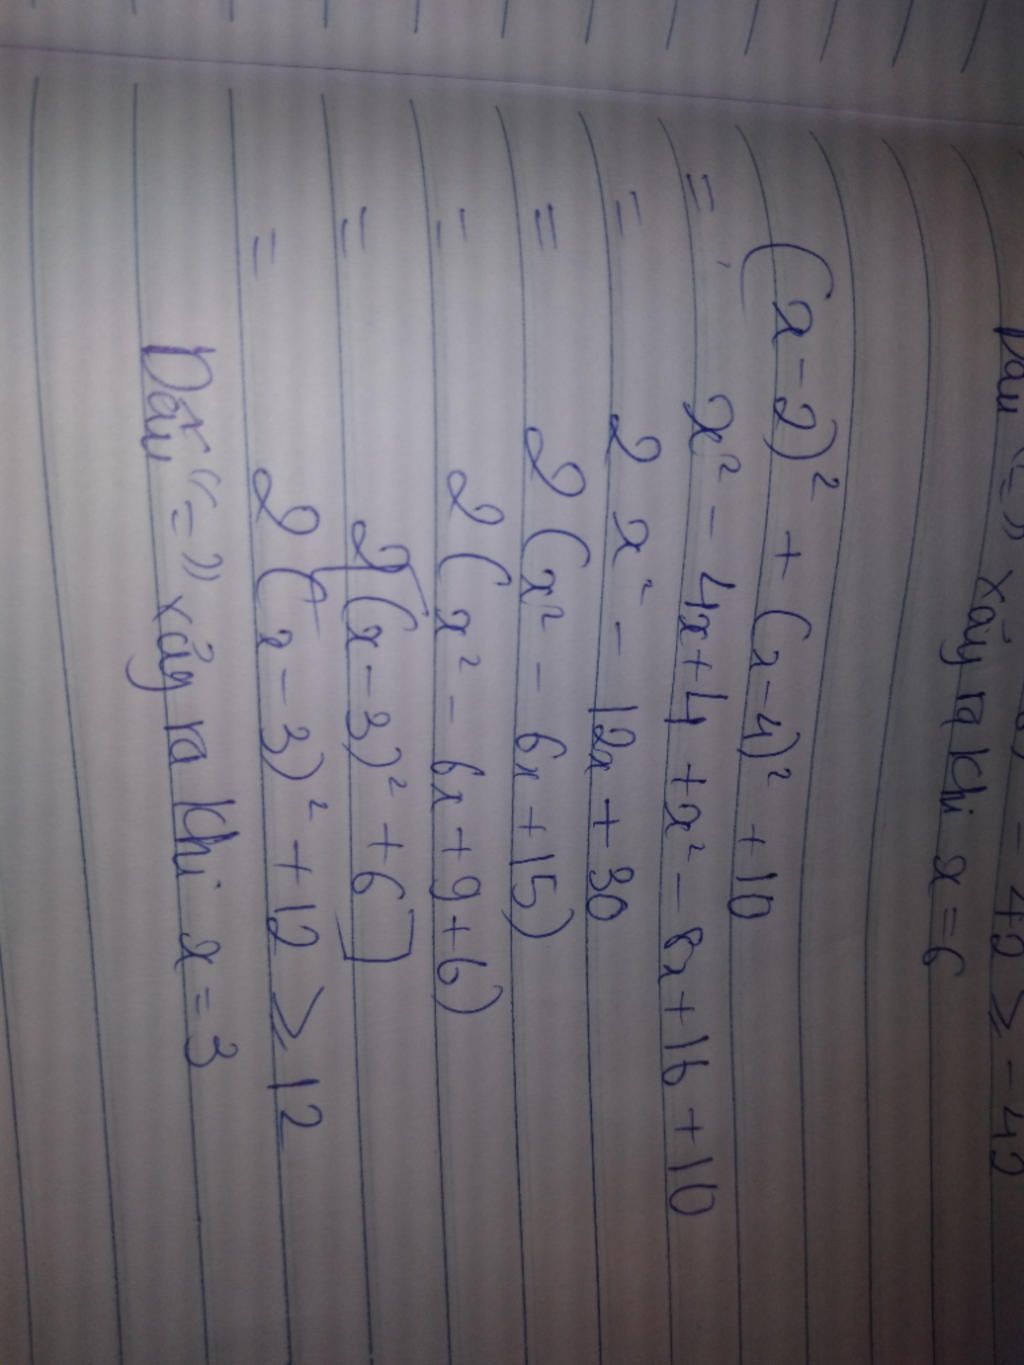 - 42 ≥ - 42
Dấu "=" xảy ra khi x = 6
(x - 2)² + (x - 4)² + 10
= x² - 4x + 4 + x² - 8x + 16 + 10
= 2x² - 12x + 30
= 2(x² - 6x + 15)
= 2(x² - 6x + 9 + 6)
= 2[(x - 3)² + 6]
= 2(x - 3)² + 12 ≥ 12
Dấu "=" xảy ra khi x = 3